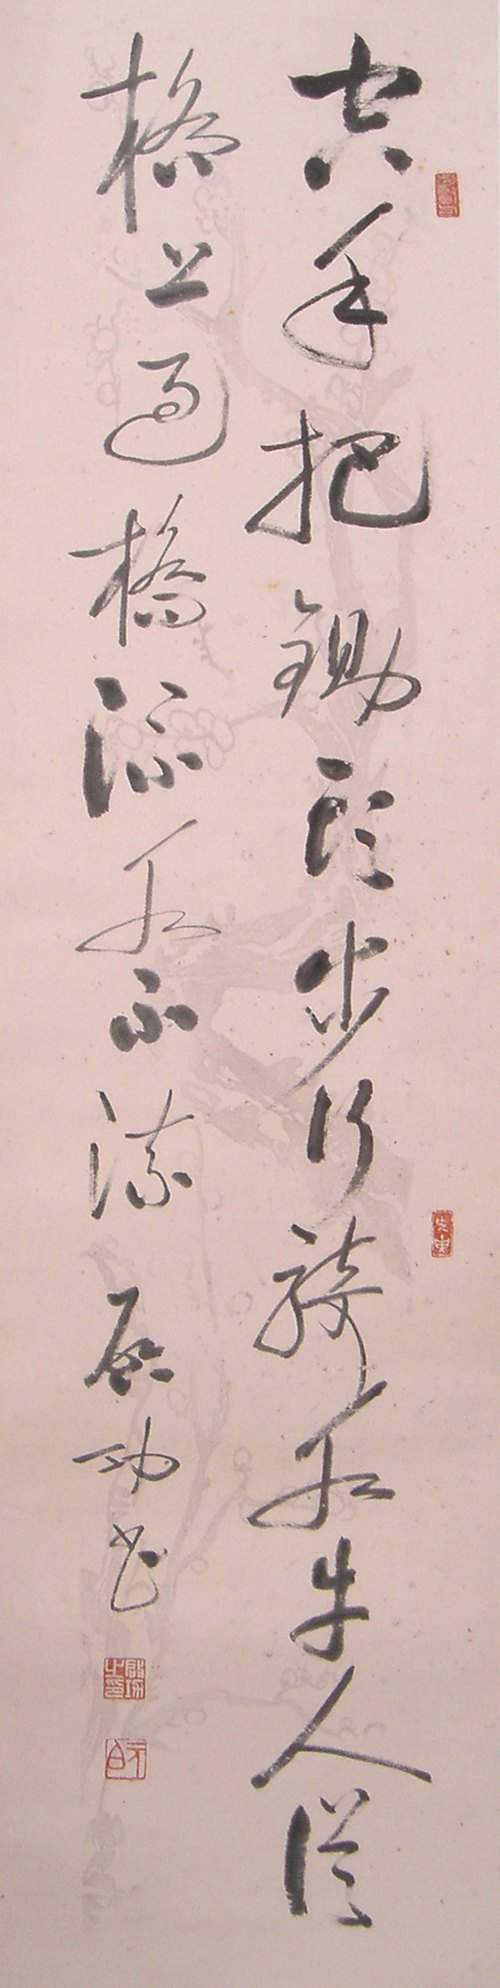 空手把鋤頭步行騎水牛人從
橋上過橋流水不流啟功書